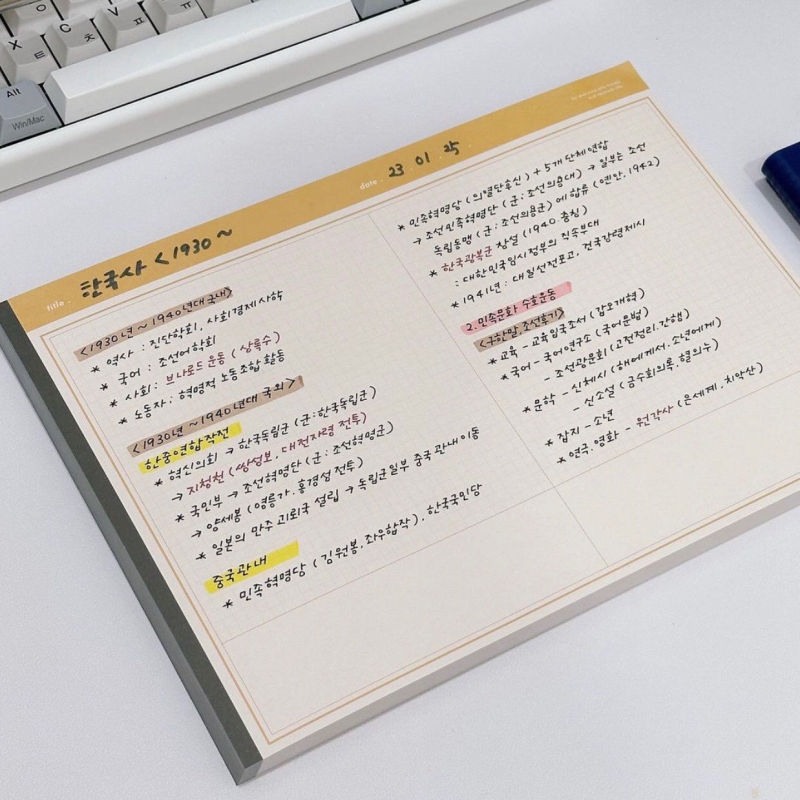 X
ㅌ
C
ㅊ
V
ㅍ
ㅠ
Alt
Win/Mac
title.
한국사 <1930~
date.
23 01 25
<1930년 ~ 1940년대 국내>
* 역사 : 진단학회, 사회경제사학
* 국어 : 조선어학회
* 사회: 브나로드운동 (상록수)
* 노동자 : 혁명적 노동조합 활동
<1930년 ~1940년대 국외>
한중연합작전
* 혁신의회 → 한국독립군 (군:한국독립군)
→ 지청천 (쌍성보, 대전자령 전투)
* 국민부 → 조선혁명단 (군: 조선혁명군)
→ 양세봉 (영릉가. 흥경성 전투)
* 일본의 만주 괴뢰국 설립 → 독립군일부 중국 관내 이동
중국관내
* 민족혁명당 (김원봉. 좌우합작). 한국국민당
* 민족혁명당 (의열단후신) + 5개 단체연합
→ 조선민족혁명단 (군: 조선의용대) → 일부는 조선
독립동맹 (군: 조선의용군)에 합류 (옌안. 1942)
* 한국광복군 창설 (1940. 충칭)
: 대한민국임시정부의 직속부대
* 1941년 : 대일선전포고, 건국강령제시
2. 민족문화 수호운동
<구한말. 조선후기>
* 교육 - 교육입국조서 (갑오개혁)
* 국어 - 국어연구소 (국어문법)
- 조선광문회 (고전정리. 간행)
* 문학 - 신체시 (해에게서. 소년에게)
- 신소설 (금수회의록, 혈의누)
* 잡지 - 소년
* 연극. 영화 - 원각사 (은세계. 치악산)